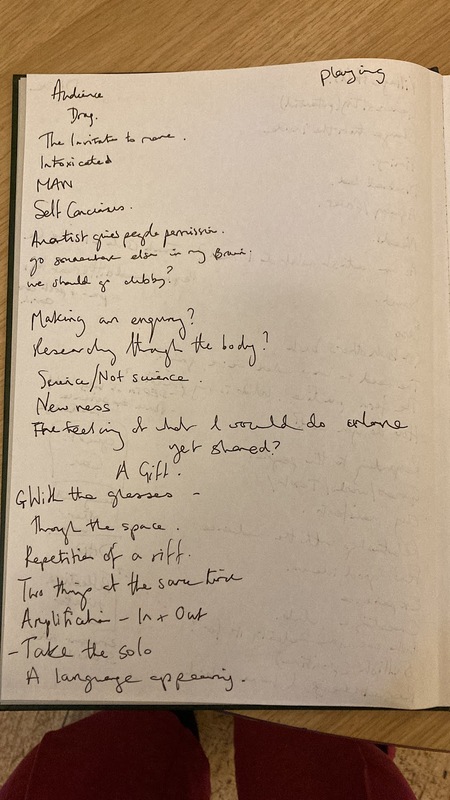 playing
Audience
Drag.
The Invitate to move.
Intoxicated
MAN
Self Conscious.
An artist gives people permission.
go somewhere else in my Brain.
we should go clubbing?
Making an enquiry?
Researching through the body?
Science/Not science.
Newness
The feeling of what I would do alone
yet shared?
A Gift.
With the glasses -
Through the space.
Repetition of a riff.
Two things at the same time
Amplification - In + Out
- Take the solo
A language appearing.